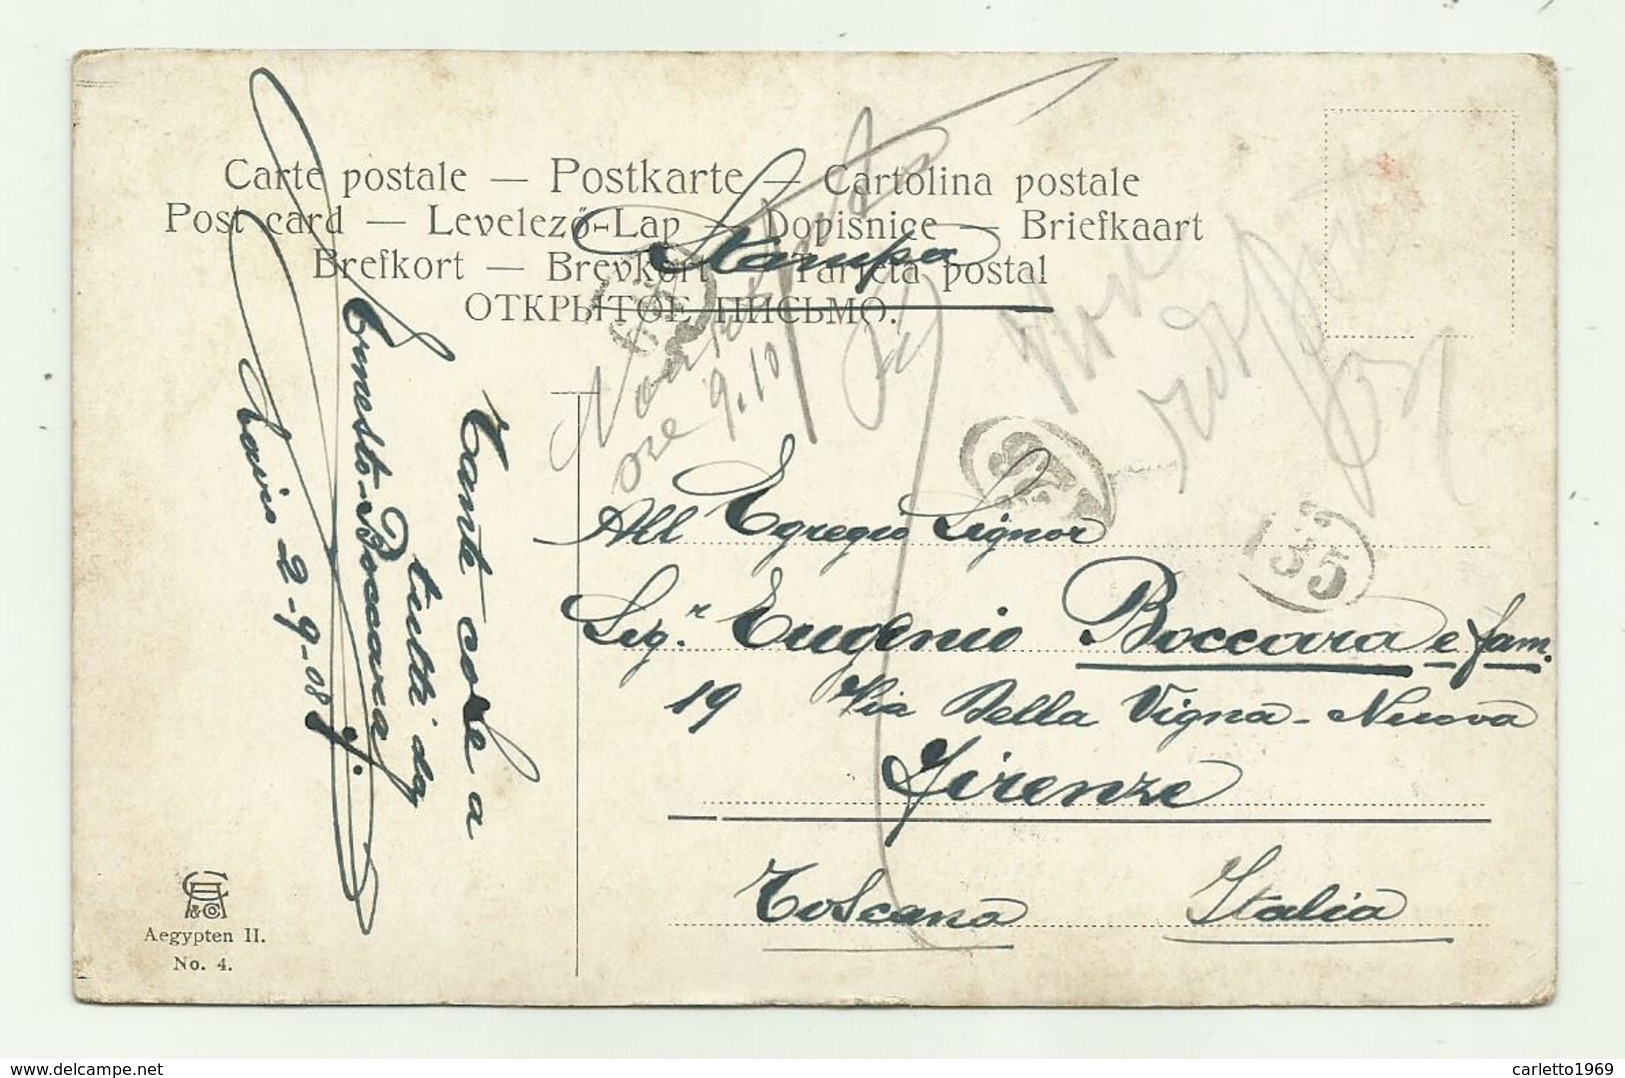 Carte postale — Postkarte — Cartolina postale
Post card — Levelező-Lap — Dopisnice — Briefkaart
Brefkort — Brevkort — Tarjeta postal
ОТКРЫТОЕ ПИСЬМО.
Stampa
ore 9.10
Non
All Egregio Signor
Sig.r Eugenio Boccara e fam.
19 Via Della Vigna-Nuova
Firenze
Toscana Italia
Tante cose a
tutti da
Ernesto Boccara
2-9-08
135
A&Co
Aegypten II.
No. 4.
delcampe.net
carletto1969